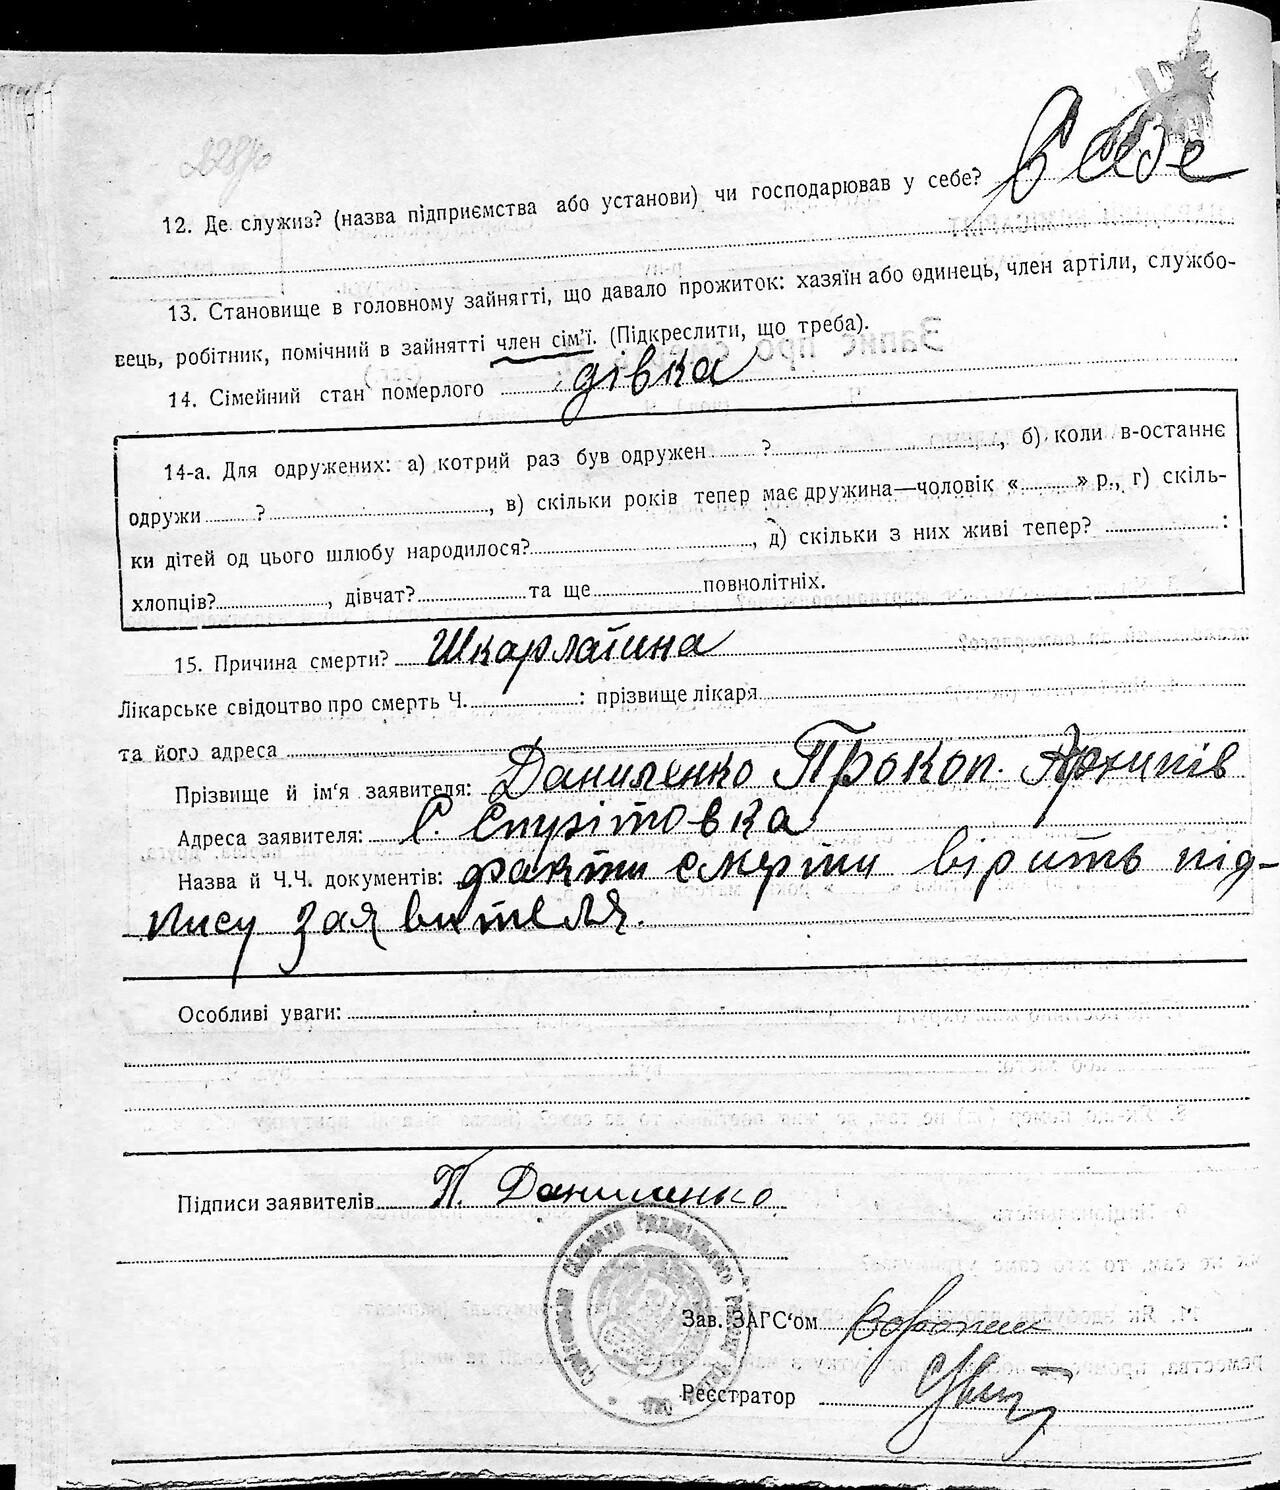 12. Де служиз? (назва підприємства або установи) чи господарював у себе? В себе
13. Становище в головному зайнятті, що давало прожиток: хазяїн або одинець, член артіли, службо-
вець, робітник, помічний в зайнятті член сім'ї. (Підкреслити, що треба).
14. Сімейний стан померлого дівка
14-а. Для одружених: а) котрий раз був одружен ?, б) коли в-останнє
одружи ?, в) скільки років тепер має дружина—чоловік « » р., г) скіль-
ки дітей од цього шлюбу народилося?, д) скільки з них живі тепер? :
хлопців?, дівчат? та ще повнолітніх.
15. Причина смерти? Шкарлатина
Лікарське свідоцтво про смерть Ч. : прізвище лікаря
та його адреса
Прізвище й ім'я заявителя: Даниленко Прокоп. Архипів
Адреса заявителя: С.
Назва й Ч.Ч. документів: факти смерти вірить під-
пису заявителя.
Особливі уваги:
Підписи заявителів П. Даниленько
Зав. ЗАГС'ом
Реєстратор